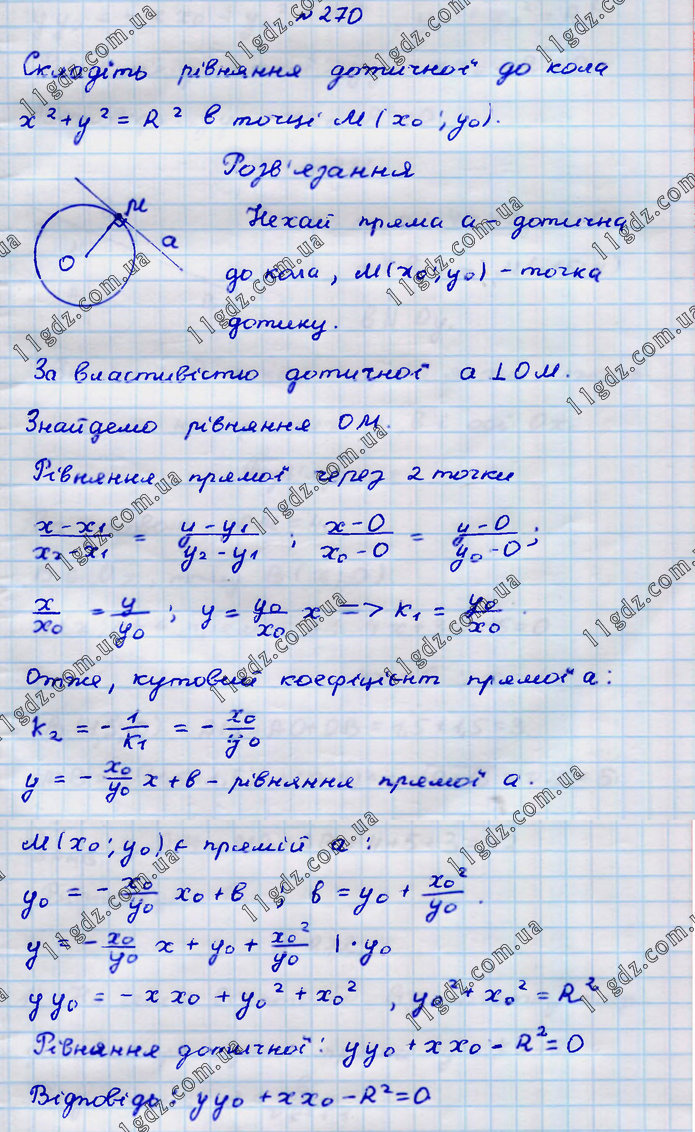 №270
Складіть рівняння дотичної до кола
x² + y² = R² в точці M(x₀; y₀).
Розв'язання
M
a
O
Нехай пряма a – дотична
до кола, M(x₀; y₀) – точка
дотику.
За властивістю дотичної a ⊥ OM.
Знайдемо рівняння OM.
Рівняння прямої через 2 точки
(x – x₁)/(x₂ – x₁) = (y – y₁)/(y₂ – y₁) ; (x – 0)/(x₀ – 0) = (y – 0)/(y₀ – 0);
x/x₀ = y/y₀ ; y = y₀/x₀ x => k₁ = y₀/x₀.
Отже, кутовий коефіцієнт прямої a:
k₂ = – 1/k₁ = – x₀/y₀
y = – x₀/y₀ x + в – рівняння прямої a.
M(x₀; y₀) є прямій a:
y₀ = – x₀/y₀ x₀ + в ; в = y₀ + x₀²/y₀.
y = – x₀/y₀ x + y₀ + x₀²/y₀ | · y₀
yy₀ = – xx₀ + y₀² + x₀² , y₀² + x₀² = R²
Рівняння дотичної: yy₀ + xx₀ – R² = 0
Відповідь: yy₀ + xx₀ – R² = 0
11gdz.com.ua